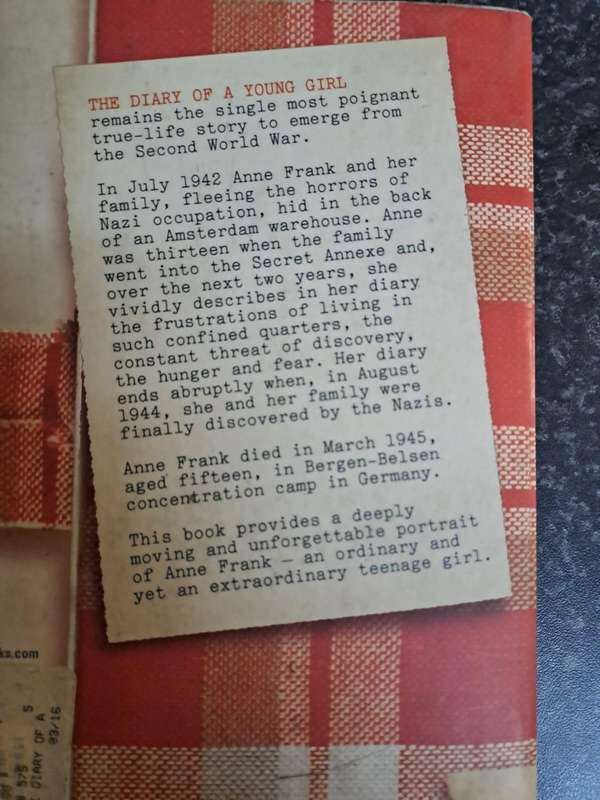 THE DIARY OF A YOUNG GIRL
remains the single most poignant
true-life story to emerge from
the Second World War.
In July 1942 Anne Frank and her
family, fleeing the horrors of
Nazi occupation, hid in the back
of an Amsterdam warehouse. Anne
was thirteen when the family
went into the Secret Annexe and,
over the next two years, she
vividly describes in her diary
the frustrations of living in
such confined quarters, the
constant threat of discovery,
the hunger and fear. Her diary
ends abruptly when, in August
1944, she and her family were
finally discovered by the Nazis.
Anne Frank died in March 1945,
aged fifteen, in Bergen-Belsen
concentration camp in Germany.
This book provides a deeply
moving and unforgettable portrait
of Anne Frank – an ordinary and
yet an extraordinary teenage girl.
ks.com
575 S
DIARY OF A
03/16